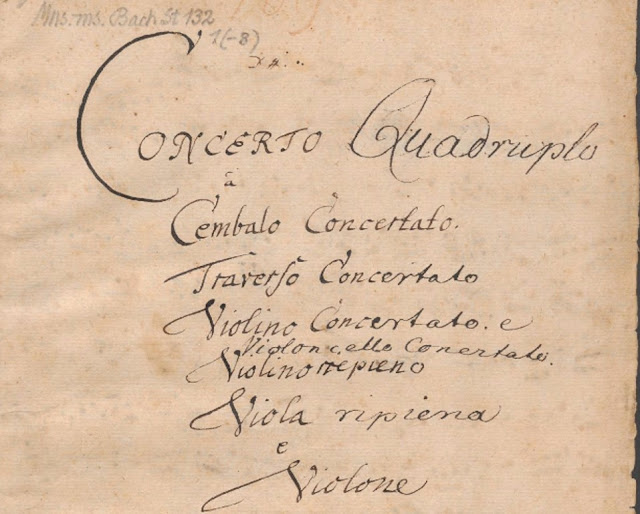 Mus. ms. Bach St 132
1(-8)
CONCERTO Quadruplo
à
Cembalo Concertato.
Traverso Concertato
Violino Concertato. e
Violoncello Concertato.
Violino repieno
Viola ripiena
e
Violone